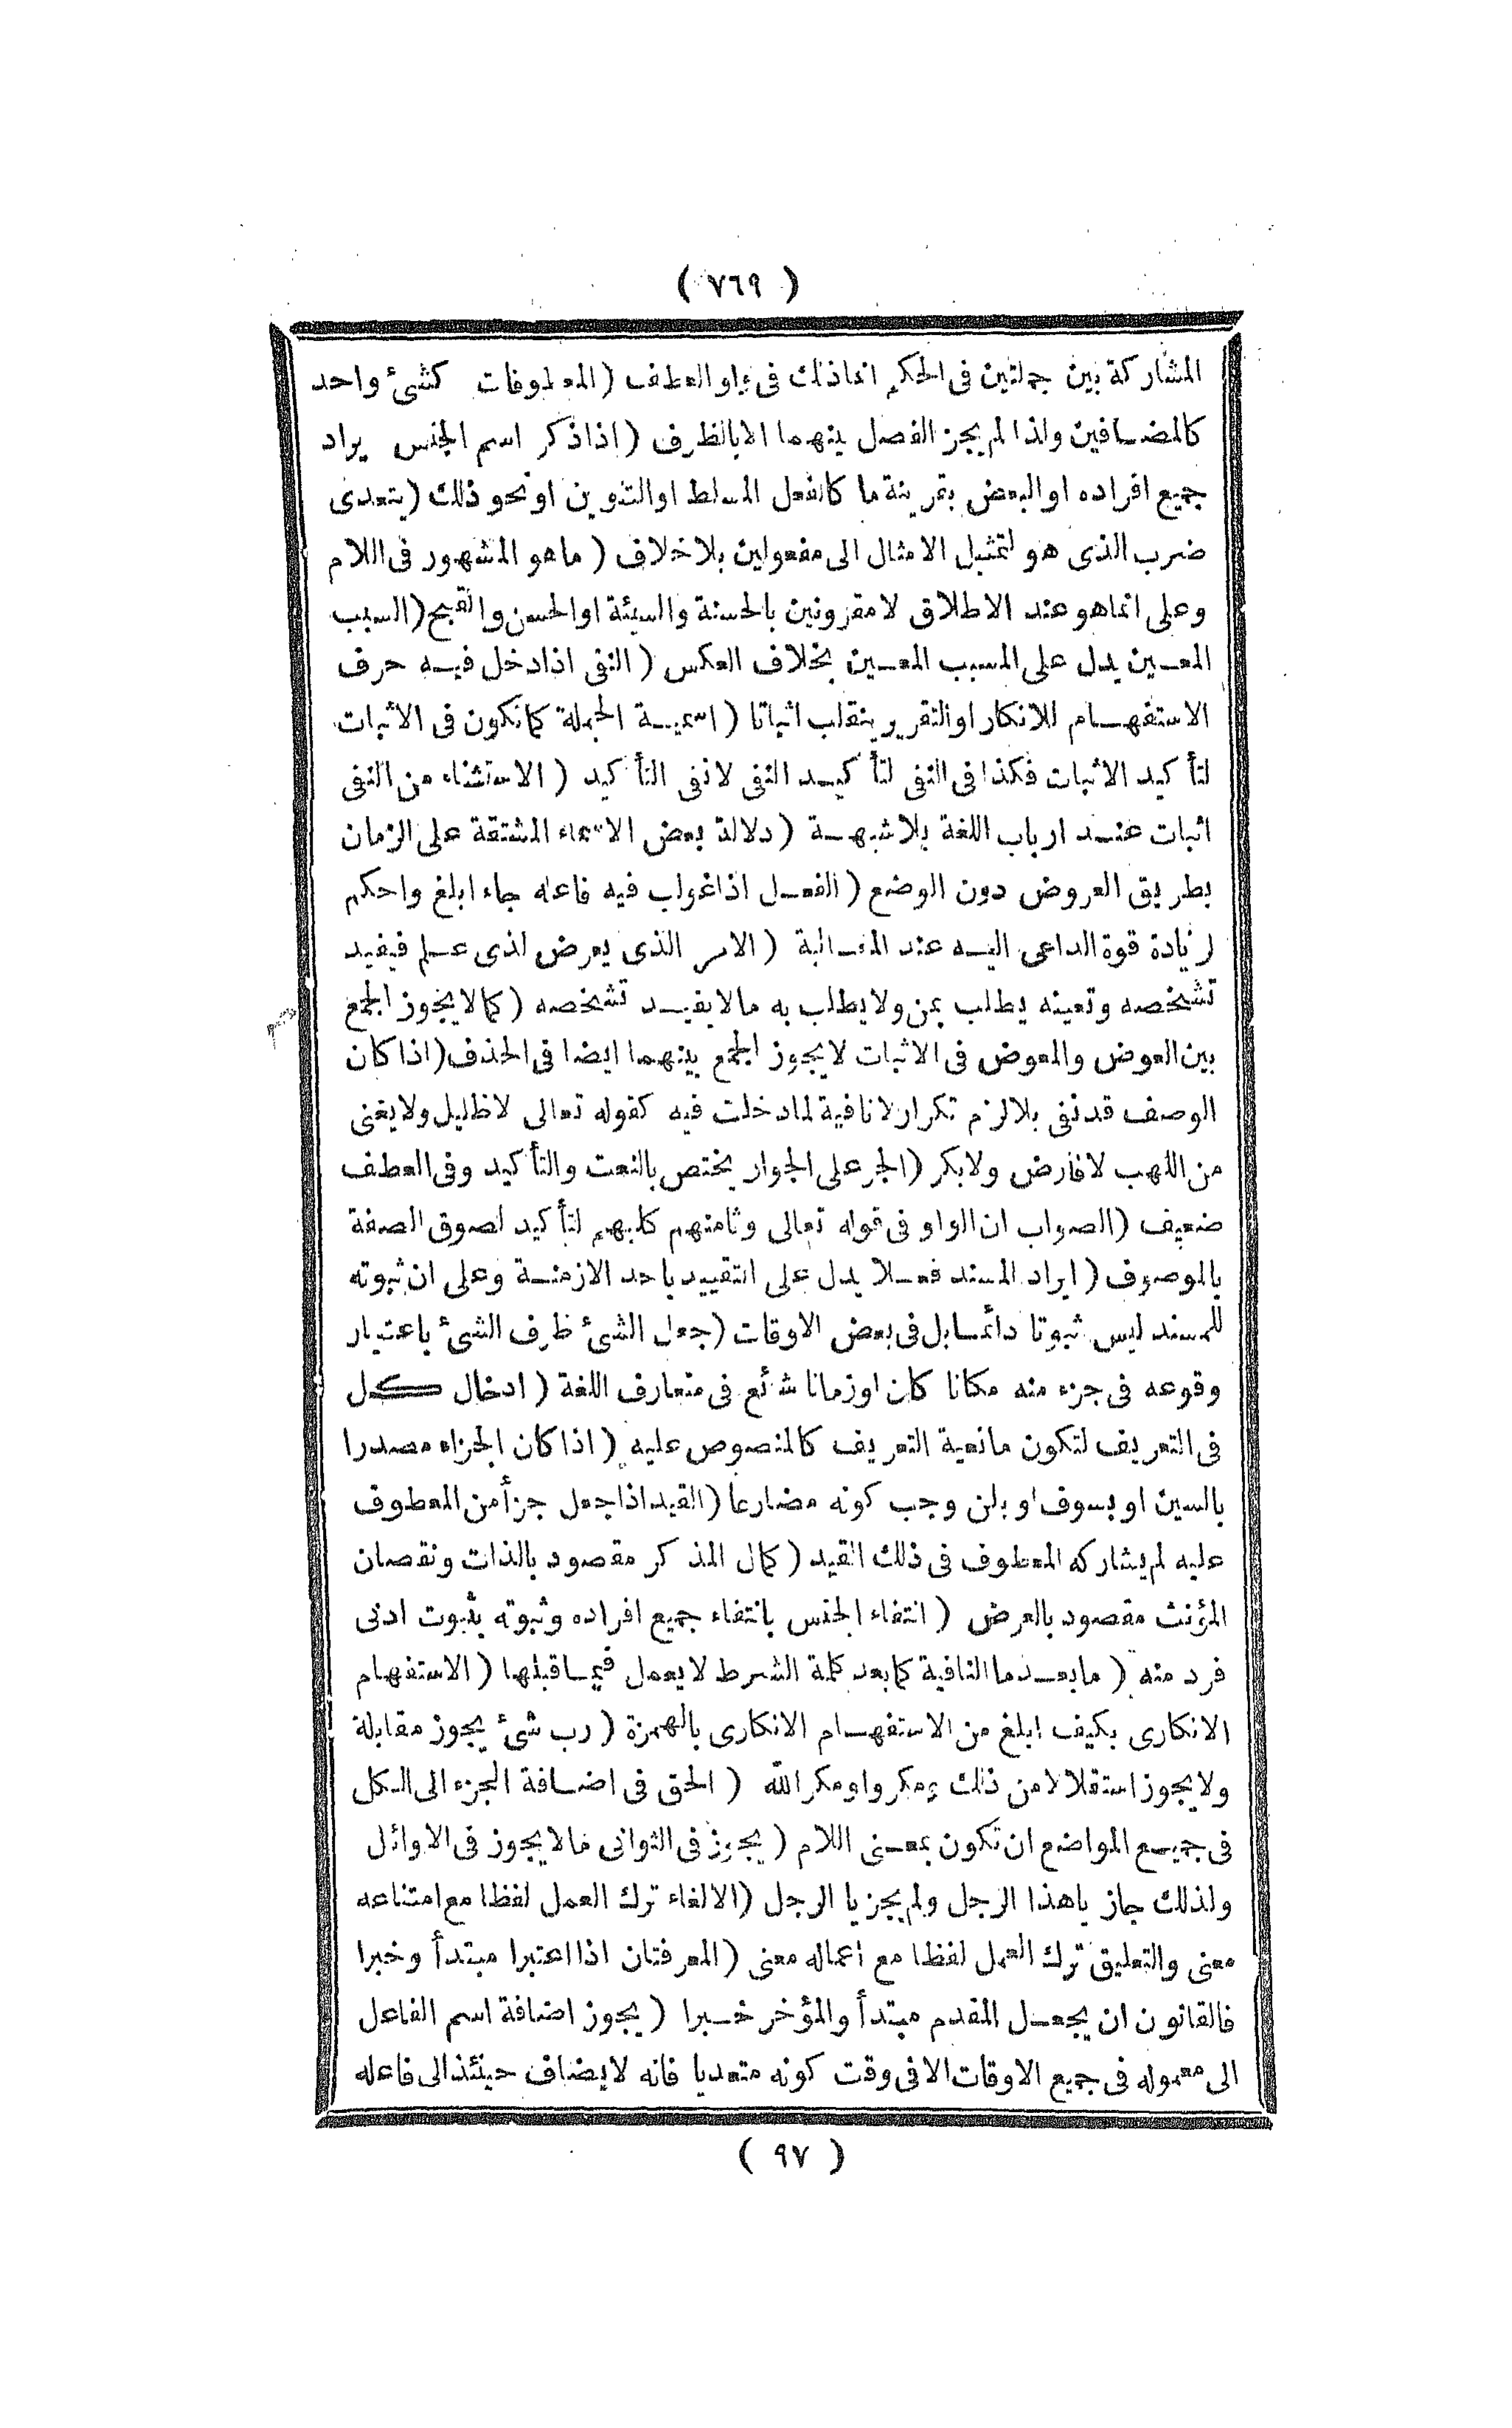 ( ٧٦٩ )
المشاركة بين جملتين فى الحكم انما ذلك فى واو العطف ( المعطوفات كشئ واحد
كالمضافين ولذا لم يجز الفصل بينهما الا بالظرف ( اذا ذكر اسم الجنس يراد
جميع افراده او البعض بقرينة ما كالفعل المسلط او التنوين او نحو ذلك ( يتعدى
ضرب الذى هو لتمثيل الامثال الى مفعولين بلا خلاف ( ما هو المشهور فى اللام
وعلى انما هو عند الاطلاق لا مقرونين بالحسنة والسيئة او الحسن والقبح ( السبب
المعين يدل على المسبب المعين بخلاف العكس ( النفى اذا دخل فيه حرف
الاستفهام للانكار او التقرير ينقلب اثباتا ( اسمية الجملة كما تكون فى الاثبات
لتأكيد الاثبات فكذا فى النفى لتأكيد النفى لا نفى التأكيد ( الاستثناء من النفى
اثبات عند ارباب اللغة بلا شبهة ( دلالة بعض الاسماء المشتقة على الزمان
بطريق العروض دون الوضع ( الفعل اذا غولب فيه فاعله جاء ابلغ واحكم
لزيادة قوة الداعى اليه عند المغالبة ( الامر الذى يعرض لذى علم فيفيد
تشخصه وتعينه يطلب بمن ولا يطلب به ما لا يفيد تشخصه ( كما لا يجوز الجمع
بين العوض والمعوض فى الاثبات لا يجوز الجمع بينهما ايضا فى الحذف ( اذا كان
الوصف قد نفى بلا لزم تكرار لا نافية لما دخلت فيه كقوله تعالى لا ظليل ولا يغنى
من اللهب لا فارض ولا بكر ( الجر على الجوار يختص بالنعت والتأكيد وفى العطف
ضعيف ( الصواب ان الواو فى قوله تعالى وثامنهم كلبهم لتأكيد لصوق الصفة
بالموصوف ( ايراد المسند فعلا يدل على التقييد باحد الازمنة وعلى ان ثبوته
للمسند ليس ثبوتا دائما بل فى بعض الاوقات ( جعل الشئ ظرف الشئ باعتبار
وقوعه فى جزء منه مكانا كان او زمانا شائع فى متعارف اللغة ( ادخال كل
فى التعريف لتكون مانعية التعريف كالمنصوص عليه ( اذا كان الجزاء مصدرا
بالسين او بسوف او بلن وجب كونه مضارعا ( القيد اذا جعل جزأ من المعطوف
عليه لم يشاركه المعطوف فى ذلك القيد ( كمال المذكر مقصود بالذات ونقصان
المؤنث مقصود بالعرض ( انتفاء الجنس بانتفاء جميع افراده وثبوته بثبوت ادنى
فرد منه ( ما بعد ما النافية كما بعد كلمة الشرط لا يعمل فيما قبلها ( الاستفهام
الانكارى بكيف ابلغ من الاستفهام الانكارى بالهمزة ( رب شئ يجوز مقابلة
ولا يجوز استقلالا من ذلك ومكروا ومكر الله ( الحق فى اضافة الجزء الى الكل
فى جميع المواضع ان تكون بمعنى اللام ( يجوز فى الثوانى مالا يجوز فى الاوائل
ولذلك جاز يا هذا الرجل ولم يجز يا الرجل ( الالغاء ترك العمل لفظا مع امتناعه
معنى والتعليق ترك العمل لفظا مع اعماله معنى ( المعرفتان اذا اعتبرا مبتدأ وخبرا
فالقانون ان يجعل المقدم مبتدأ والمؤخر خبرا ( يجوز اضافة اسم الفاعل
الى معموله فى جميع الاوقات الا فى وقت كونه متعديا فانه لا يضاف حينئذ الى فاعله
( ٩٧ )